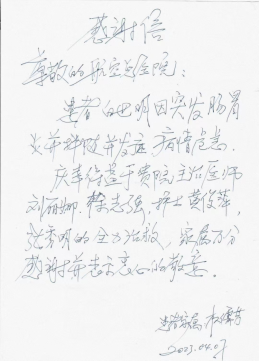 感谢信
尊敬的航空总医院：
患者白世明因突发肠胃
炎并伴随并发症 病情危急.
庆幸得益于贵院主治医师
刘丽娜. 徐志强, 护士黄俊萍,
张秀明的全力治救, 家属万分
感谢并表示衷心的敬意.
患者家属
2023.04.07